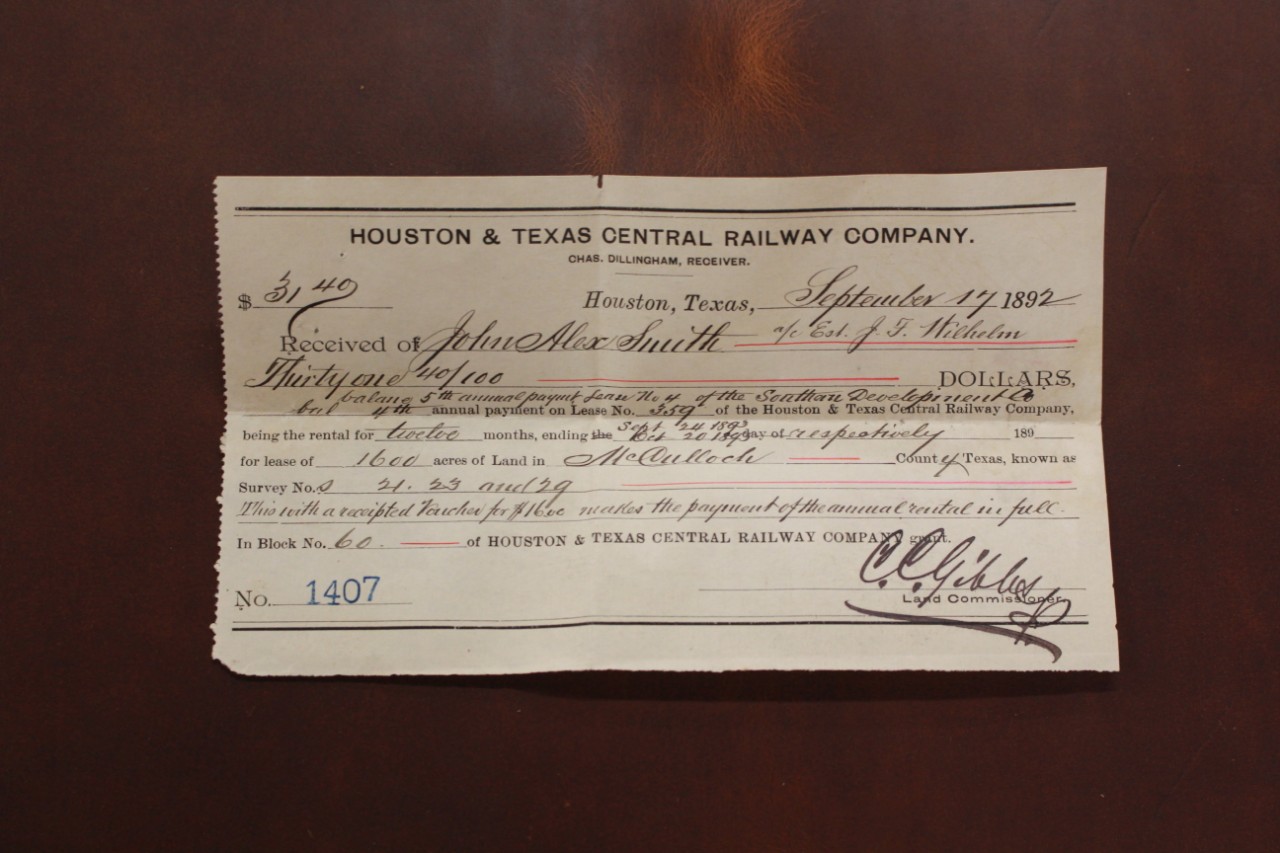 HOUSTON & TEXAS CENTRAL RAILWAY COMPANY.
CHAS. DILLINGHAM, RECEIVER.
$ 31 40
Houston, Texas, September 17 1892
Received of John Alex Smith a/c Est. J. F. Wilhelm
Thirty one 40/100 DOLLARS,
balance 5th annual paymt Lease No 4 of the Southern Development Co
bal 4th annual payment on Lease No. 359 of the Houston & Texas Central Railway Company,
Sept 24 1893
being the rental for twelve months, ending the Oct 20 1893 day of respectively 189
for lease of 1600 acres of Land in McCulloch County Texas, known as
Survey No.s 21. 23 and 29
This with a receipted Voucher for $16.00 makes the payment of the annual rental in full.
In Block No. 60. of HOUSTON & TEXAS CENTRAL RAILWAY COMPANY grant.
C. C. Gibbs
No. 1407
Land Commissioner.